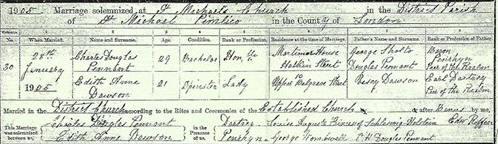 1905 Marriage solemnized at St Michaels Church in the District Parish
of St Michael Pimlico in the County of London
No. When Married. Name and Surname. Age. Condition. Rank or Profession. Residence at the time of Marriage. Father's Name and Surname. Rank or Profession of Father.
30 28th January 1905 Charles Douglas Pennant 29 Bachelor Honble Mortimer House Halkin Street George Sholto Douglas Pennant Baron Penrhyn Peer of the Realm
Edith Anne Dawson 21 Spinster Lady Upper Belgrave Street Vesey Dawson Earl Dartrey Peer of the Realm
Married in the District Church according to the Rites and Ceremonies of the Established Church after Banns by me,
This Marriage was solemnized between us, Charles Douglas Pennant Edith Anne Dawson in the Presence of us, Dartrey Louise Augusta Princess of Schleswig Holstein
Penrhyn George Douglas Pennant